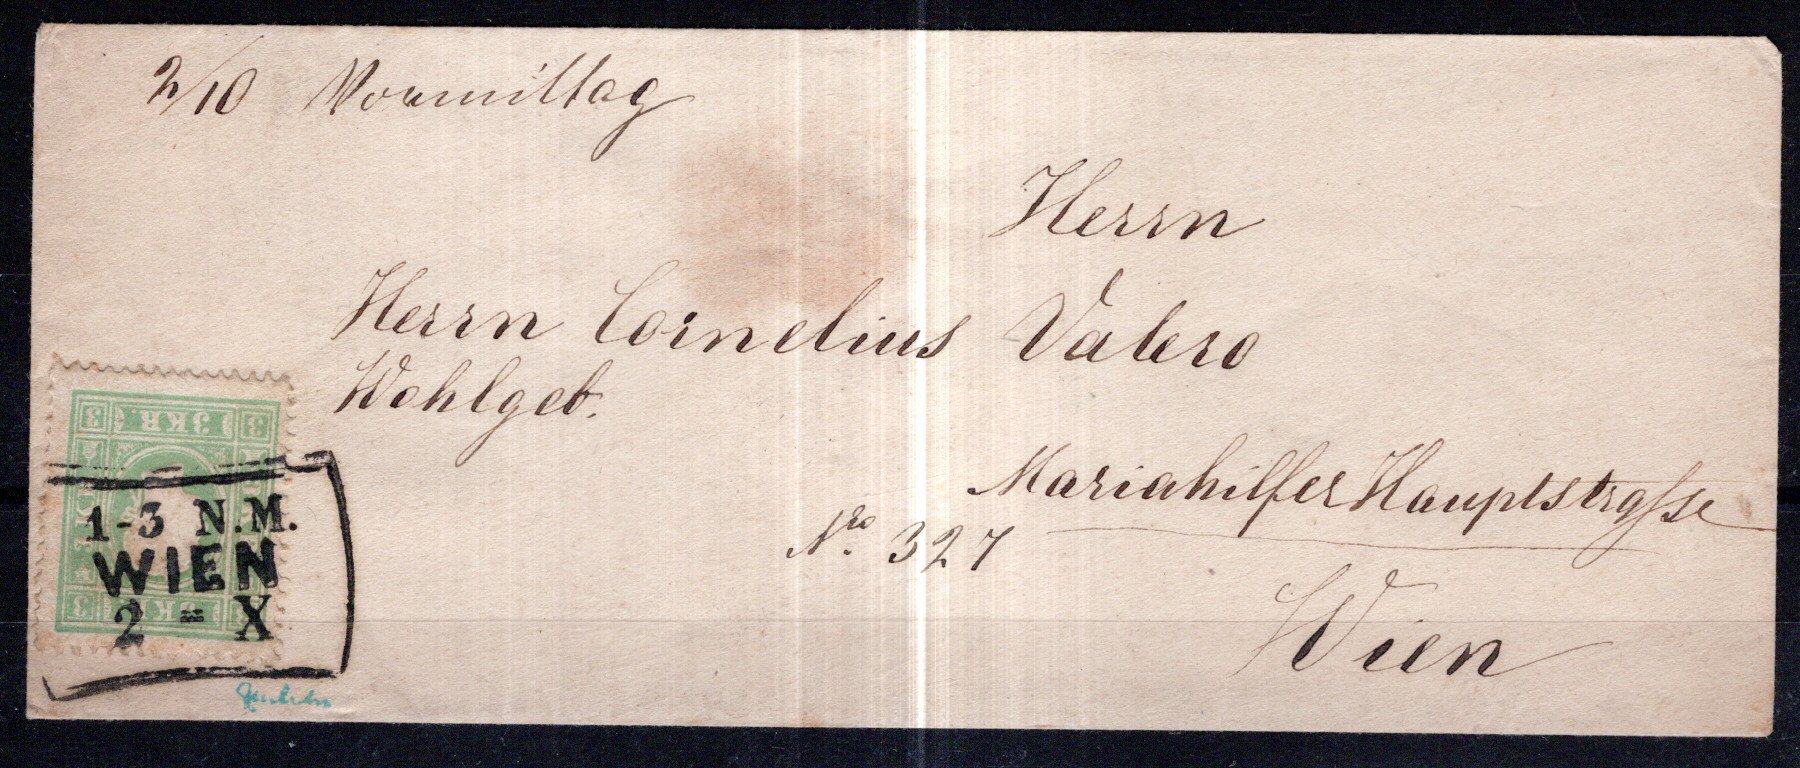 2/10 Vormittag
Herrn
Herrn Cornelius Valero
Wohlgeb.
Mariahilfer Hauptstrasse
Nro. 327
Wien
3 3 KR 3
1-3 N.M.
WIEN
2 = X